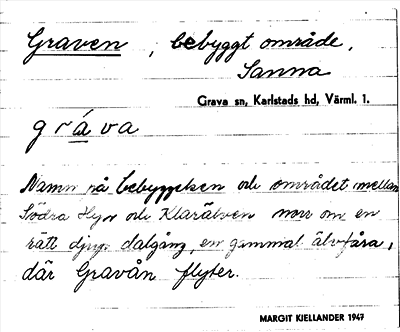 Graven, bebyggt område,
Sanna
Grava sn, Karlstads hd, Värml. l.
gráva
Namn på bebyggelsen och området mellan
Södra Hyn och Klarälven norr om en
rätt djup dalgång, en gammal älvfåra,
där Gravån flyter.
MARGIT KJELLANDER 1947